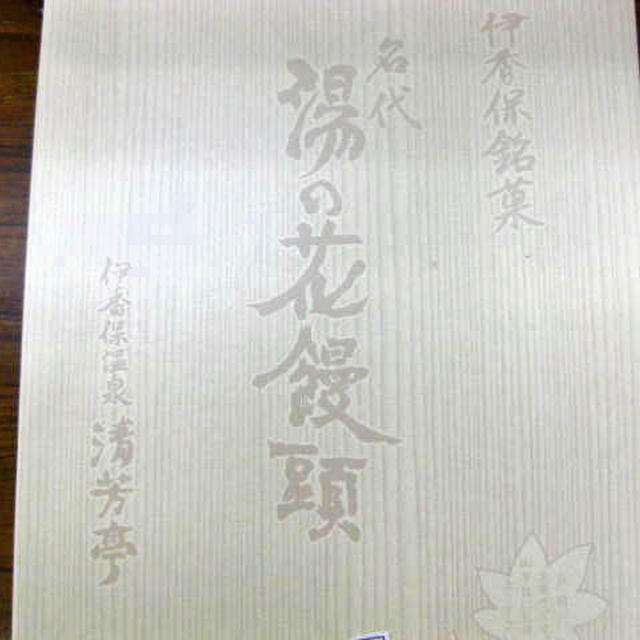 伊香保銘菓
名代
湯の花饅頭
伊香保温泉 清芳亭